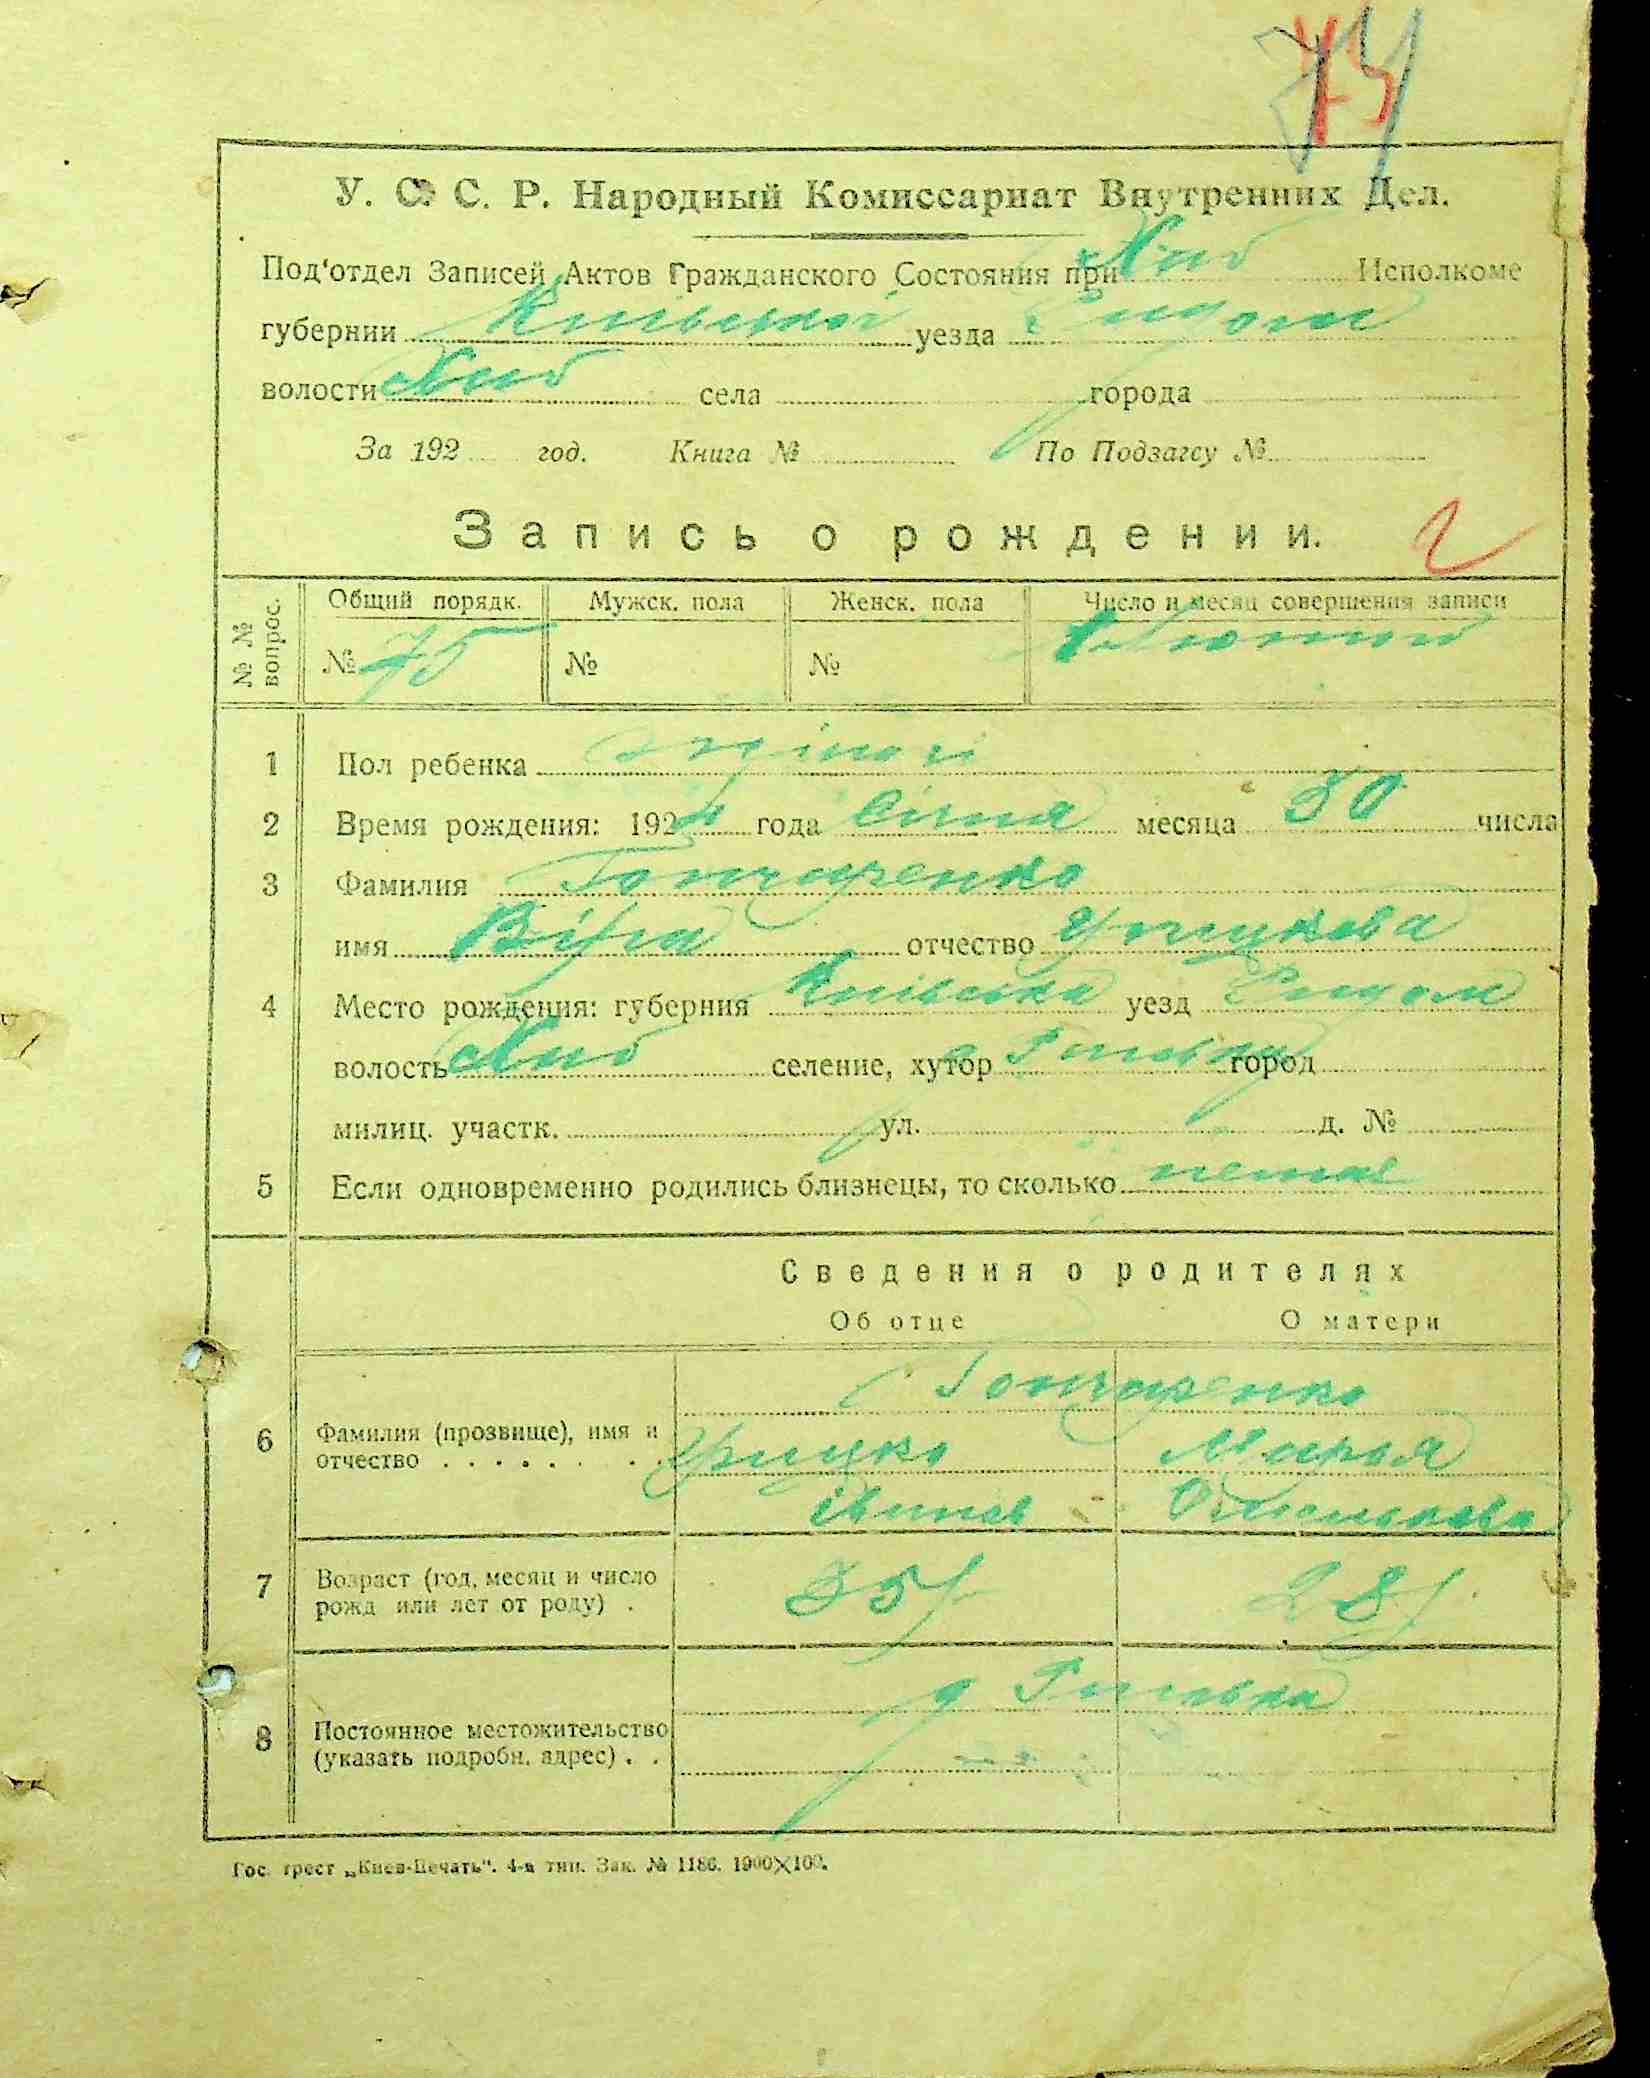 74
У. С. С. Р. Народный Комиссариат Внутренних Дел.
Под'отдел Записей Актов Гражданского Состояния при Хаб Исполкоме
губернии Київської уезда
волости Хаб села города
За 192 год. Книга № По Подзагсу №
Запись о рождении.
2
№ № вопрос.
Общий порядк. Мужск. пола Женск. пола Число и месяц совершения записи
№ 75 № № 1 Лютий
1 Пол ребенка жіноч
2 Время рождения: 1924 года Січня месяца 30 числа
3 Фамилия Гончаренко
имя Віра отчество Грицкова
4 Место рождения: губерния Київська уезд
волость Хаб селение, хутор город
милиц. участк. ул. д. №
5 Если одновременно родились близнецы, то сколько немає
Сведения о родителях
Об отце О матери
Гончаренко
6 Фамилия (прозвище), имя и отчество Грицко Марья
Іванов
7 Возраст (год, месяц и число рожд или лет от роду) 35 28
8 Постоянное местожительство (указать подробн. адрес)
Гос. трест „Киев-Печать". 4-я тип. Зак. № 1186. 1900×100.